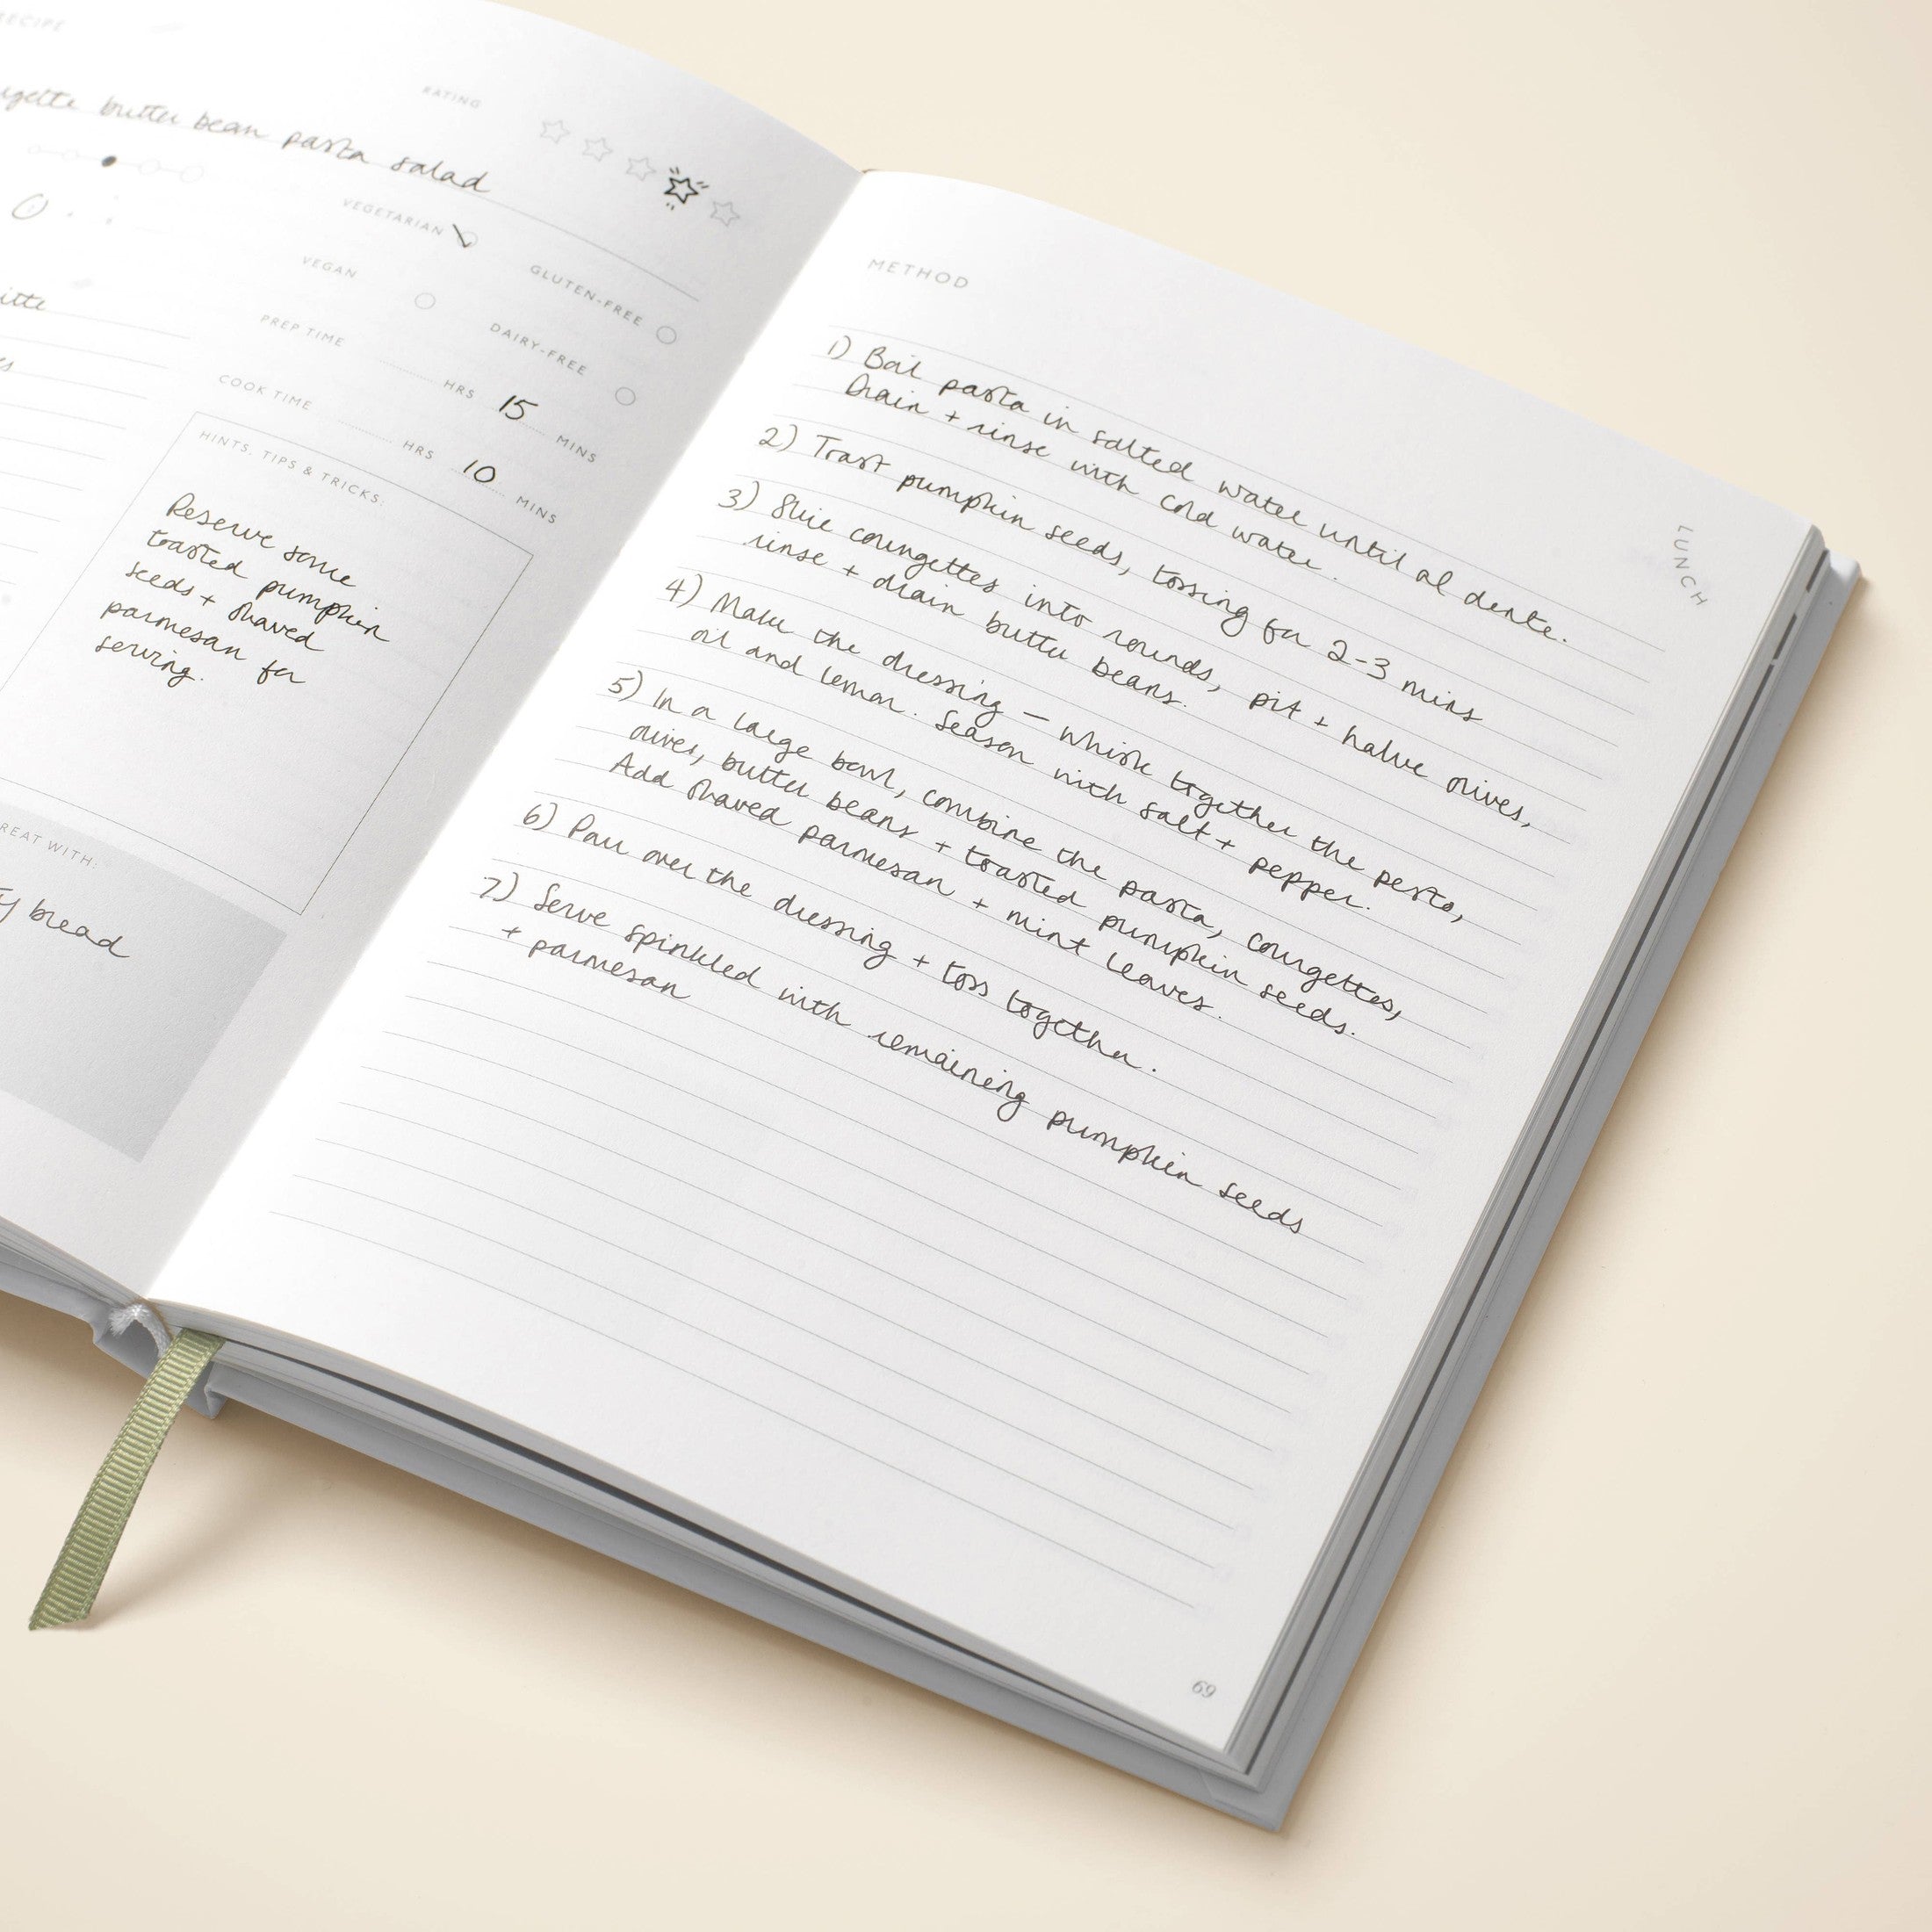 RECIPE
butter bean pasta salad
RATING
VEGETARIAN
GLUTEN-FREE
VEGAN
DAIRY-FREE
PREP TIME HRS 15 MINS
COOK TIME HRS 10 MINS
HINTS, TIPS & TRICKS:
Reserve some
toasted pumpkin
seeds + shaved
parmesan for
serving.
WITH:
bread
METHOD
1) Boil pasta in salted water until al dente.
Drain + rinse with cold water.
2) Toast pumpkin seeds, tossing for 2-3 mins
3) Slice courgettes into rounds, pit + halve olives,
rinse + drain butter beans.
4) Make the dressing – whisk together the pesto,
oil and lemon. Season with salt + pepper.
5) In a large bowl, combine the pasta, courgettes,
olives, butter beans + toasted pumpkin seeds.
Add shaved parmesan + mint leaves.
6) Pour over the dressing + toss together.
7) Serve spinkled with remaining pumpkin seeds
+ parmesan
LUNCH
69